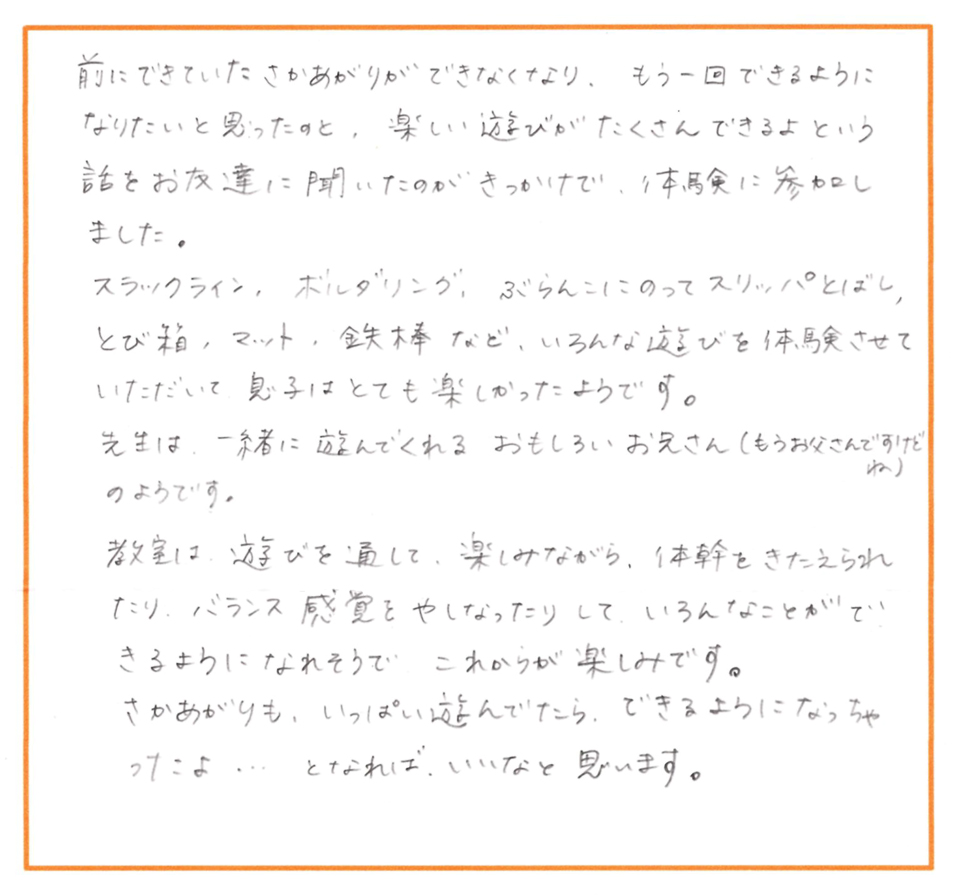 前にできていたさかあがりができなくなり、もう一回できるように
なりたいと思ったのと、楽しい遊びがたくさんできるよという
話をお友達に聞いたのがきっかけで、体験に参加し
ました。
スラックライン、ボルダリング、ぶらんこにのってスリッパとばし、
とび箱、マット、鉄棒など、いろんな遊びを体験させて
いただいて息子はとても楽しかったようです。
先生は、一緒に遊んでくれるおもしろいお兄さん(もうお父さんですけど
ね)
のようです。
教室は、遊びを通して、楽しみながら、体幹をきたえられ
たり、バランス感覚をやしなったりして、いろんなことがで
きるようになれそうで これからが楽しみです。
さかあがりも、いっぱい遊んでたら、できるようになっちゃ
ったよ… となれば、いいなと思います。